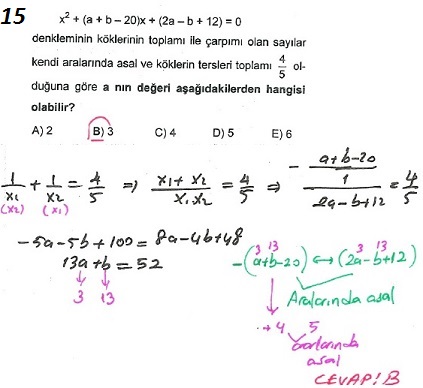 15 x² + (a + b – 20)x + (2a – b + 12) = 0
denkleminin köklerinin toplamı ile çarpımı olan sayılar
kendi aralarında asal ve köklerin tersleri toplamı 4/5 ol-
duğuna göre a nın değeri aşağıdakilerden hangisi
olabilir?
A) 2 B) 3 C) 4 D) 5 E) 6
1/x₁ + 1/x₂ = 4/5 ⇒ (x₁ + x₂)/(x₁.x₂) = 4/5 ⇒ (-(a+b-20)/1)/(2a-b+12) = 4/5
(x₂) (x₁)
-5a-5b+100 = 8a-4b+48
13a+b = 52
3 13
3 13 3 13
-(a+b-20) ↔ (2a-b+12)
Aralarında asal
+4 5
aralarında
asal
CEVAP: B